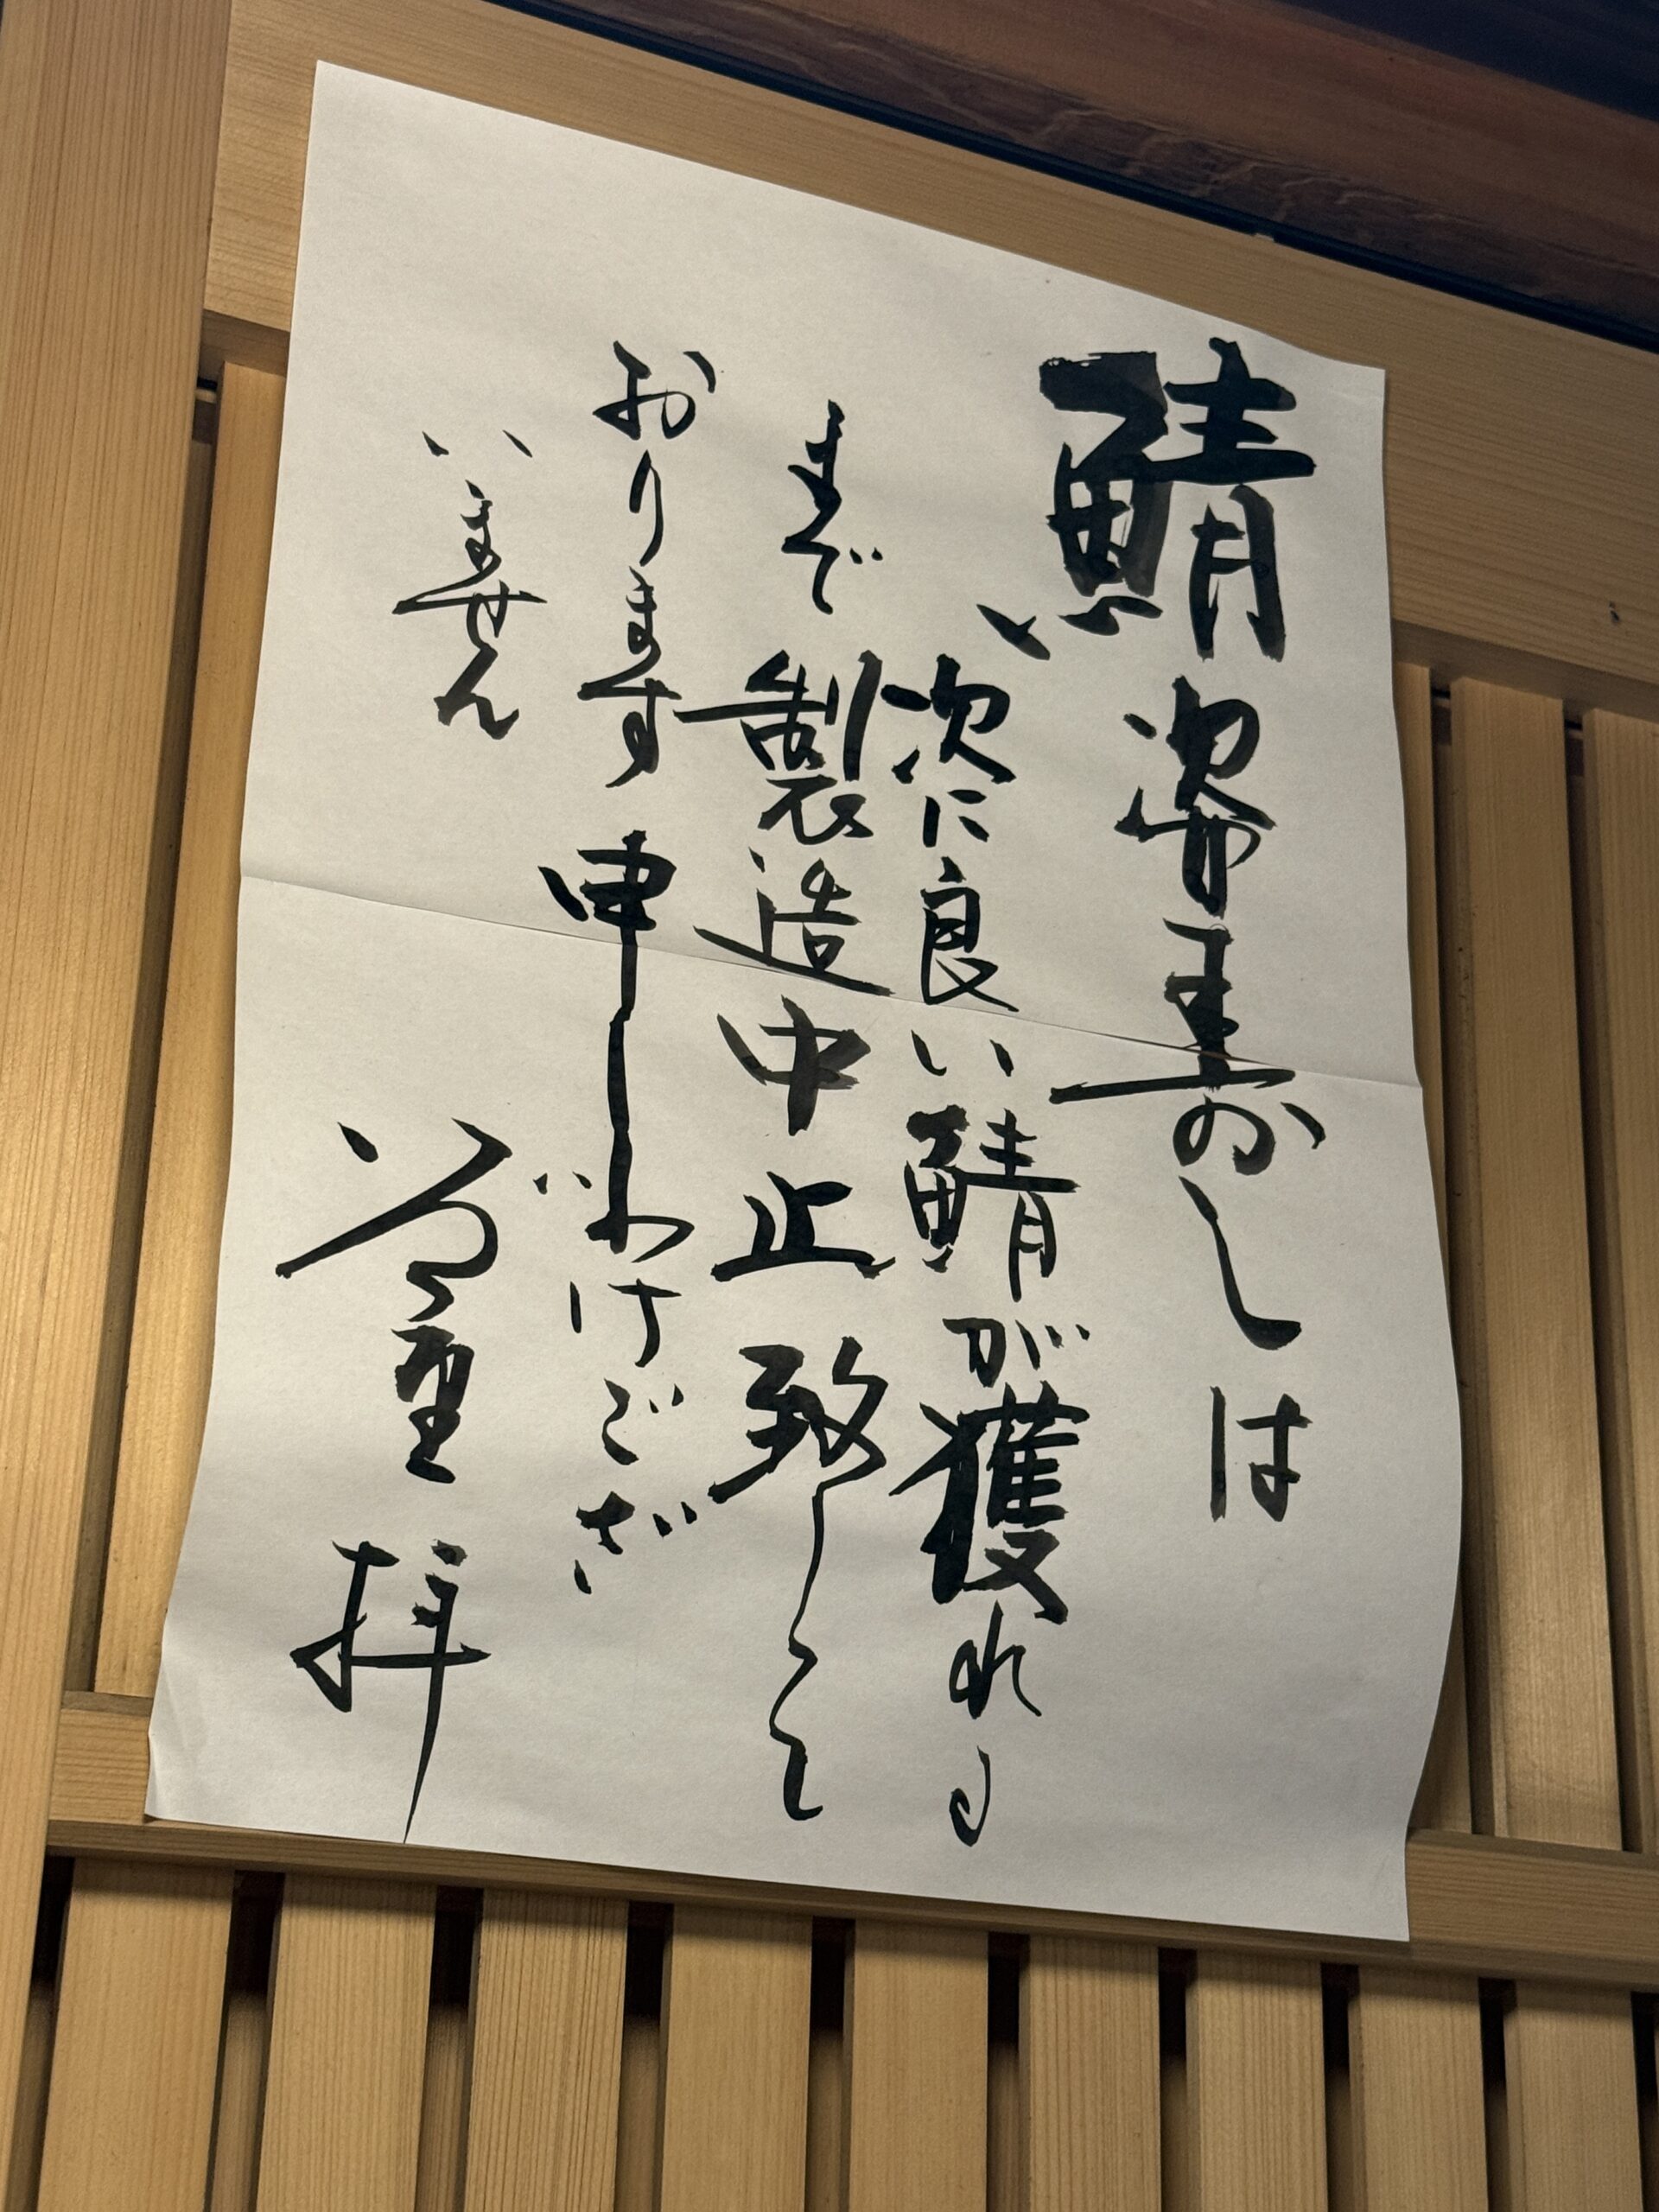 鯖姿寿しは
次に良い鯖が獲れる
まで製造中止致して
おります申しわけござ
いません
拝